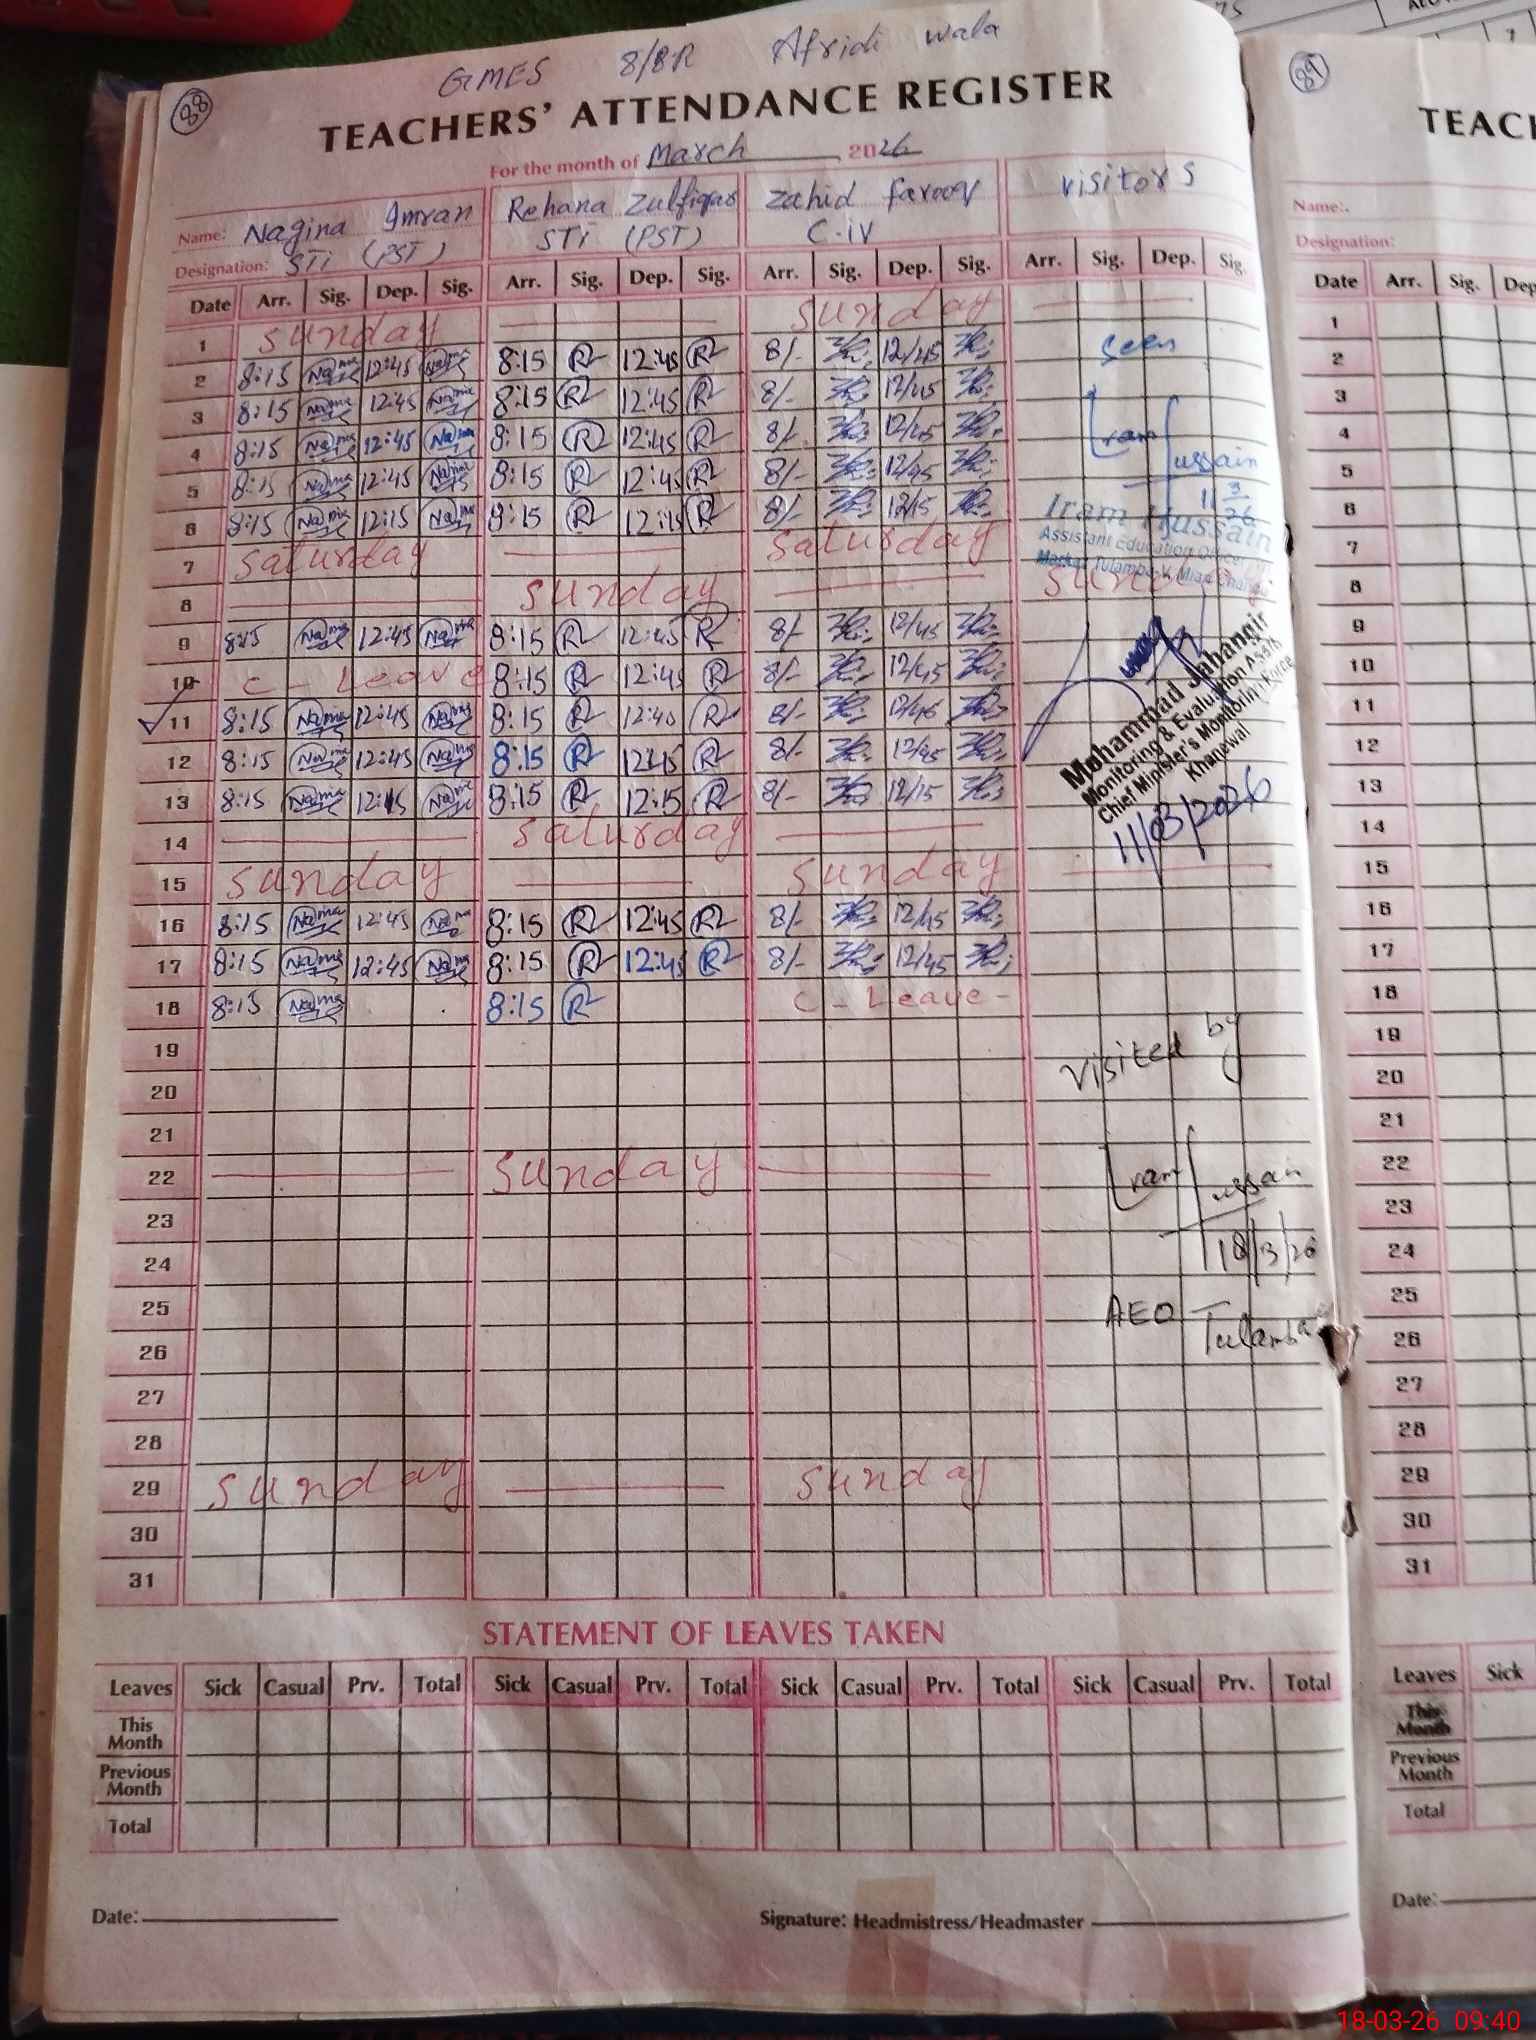 88
GMES 8/8R Afridi wala
TEACHERS' ATTENDANCE REGISTER
For the month of March 2026
Name: Nagina Imran Rehana Zulfiqar Zahid farooq visitors
Designation: STi (PST) STi (PST) C-iv
Date Arr. Sig. Dep. Sig. Arr. Sig. Dep. Sig. Arr. Sig. Dep. Sig. Arr. Sig. Dep. Sig.
1 Sunday Sunday
2 8:15 12:45 8:15 R 12:45 R 8/- 12/45 Seen
3 8:15 12:45 8:15 R 12:45 R 8/- 12/45
4 8:15 12:45 8:15 R 12:45 R 8/- 12/45 Iram Hussain
5 8:15 12:45 8:15 R 12:45 R 8/- 12/45
6 8:15 12:15 8:15 R 12:15 R 8/- 12/15 11 3/26
Iram Hussain
Assistant Education Officer
Markaz Tulamba-V, Mian Channu
7 Saturday Saturday
8 Sunday Sunday
9 8:15 12:45 8:15 R 12:45 R 8/- 12/45
10 C-Leave 8:15 R 12:45 R 8/- 12/45
11 8:15 12:45 8:15 R 12:45 R 8/- 12/45
12 8:15 12:45 8:15 R 12:45 R 8/- 12/45
13 8:15 12:15 8:15 R 12:15 R 8/- 12/15
Mohammad Jahangir
Monitoring & Evaluation Asstt
Chief Minister's Monitoring Force
Khanewal
11/03/2026
14 Saturday
15 Sunday Sunday
16 8:15 12:45 8:15 R 12:45 R 8/- 12/45
17 8:15 12:45 8:15 R 12:45 R 8/- 12/45
18 8:15 8:15 R C-Leave-
19 visited by
20
21
22 Sunday Iram Hussain
23
24 18/3/26
25 AEO Tulamba
26
27
28
29 Sunday Sunday
30
31
STATEMENT OF LEAVES TAKEN
Leaves Sick Casual Prv. Total Sick Casual Prv. Total Sick Casual Prv. Total Sick Casual Prv. Total
This Month
Previous Month
Total
Date:
Signature: Headmistress/Headmaster
89
TEACH
Name:.
Designation:
Date Arr. Sig. Dep
1
2
3
4
5
6
7
8
9
10
11
12
13
14
15
16
17
18
19
20
21
22
23
24
25
26
27
28
29
30
31
Leaves Sick
This Month
Previous Month
Total
Date:
18-03-26 09:40